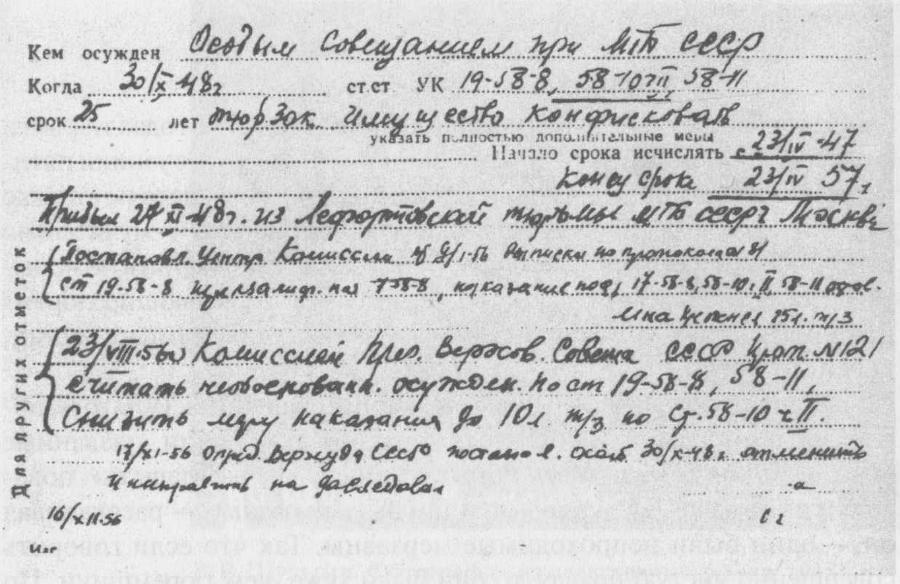 Кем осужден Особым совещанием при МГБ СССР
Когда 30/X-48г ст.ст УК 19-58-8, 58-10 ч II, 58-11
срок 25 лет тюрзак. Имущество конфисковать
указать полностью дополнительные меры
Начало срока исчислять с 23/IV-47
Конец срока 23/IV 57г
Прибыл 27/XI-48г. из Лефортовской тюрьмы МГБ СССР г Москвы
Постановл. Центр Комиссии от Выписки из протокола
ст 19-58-8 на 17-58-8, наказание по 17-58-8, 58-10 ч II, 58-11
25л. т/з
23/VIII-56г Комиссией През. Верхов. Совета СССР прот. №121
Считать необоснованн. осужден. по ст 19-58-8, 58-11,
Снизить меру наказания до 10л т/з по ст-58-10 ч II.
17/XI-56 Опред. Верхсуда СССР постанов. 30/X-48г. отменить
и направить на доследован
Для других отметок
16/XII-56